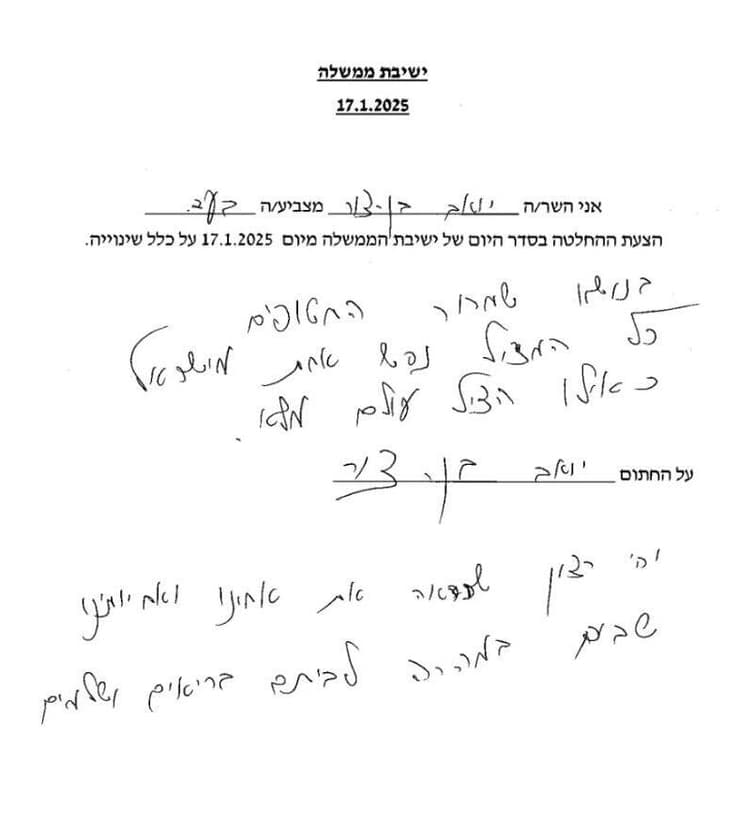 ישיבת ממשלה
17.1.2025
אני השר/ה יואב בן-צור מצביע/ה בעד.
הצעת ההחלטה בסדר היום של ישיבת הממשלה מיום 17.1.2025 על כלל שינוייה.
בנושא שחרור החטופים
כל המציל נפש אחת מישראל
כאילו הציל עולם מלא.
על החתום יואב בן. צור
יה' רצון שנראה את אחינו ואחיותינו
שבים במהרה לביתם בריאים ושלמים